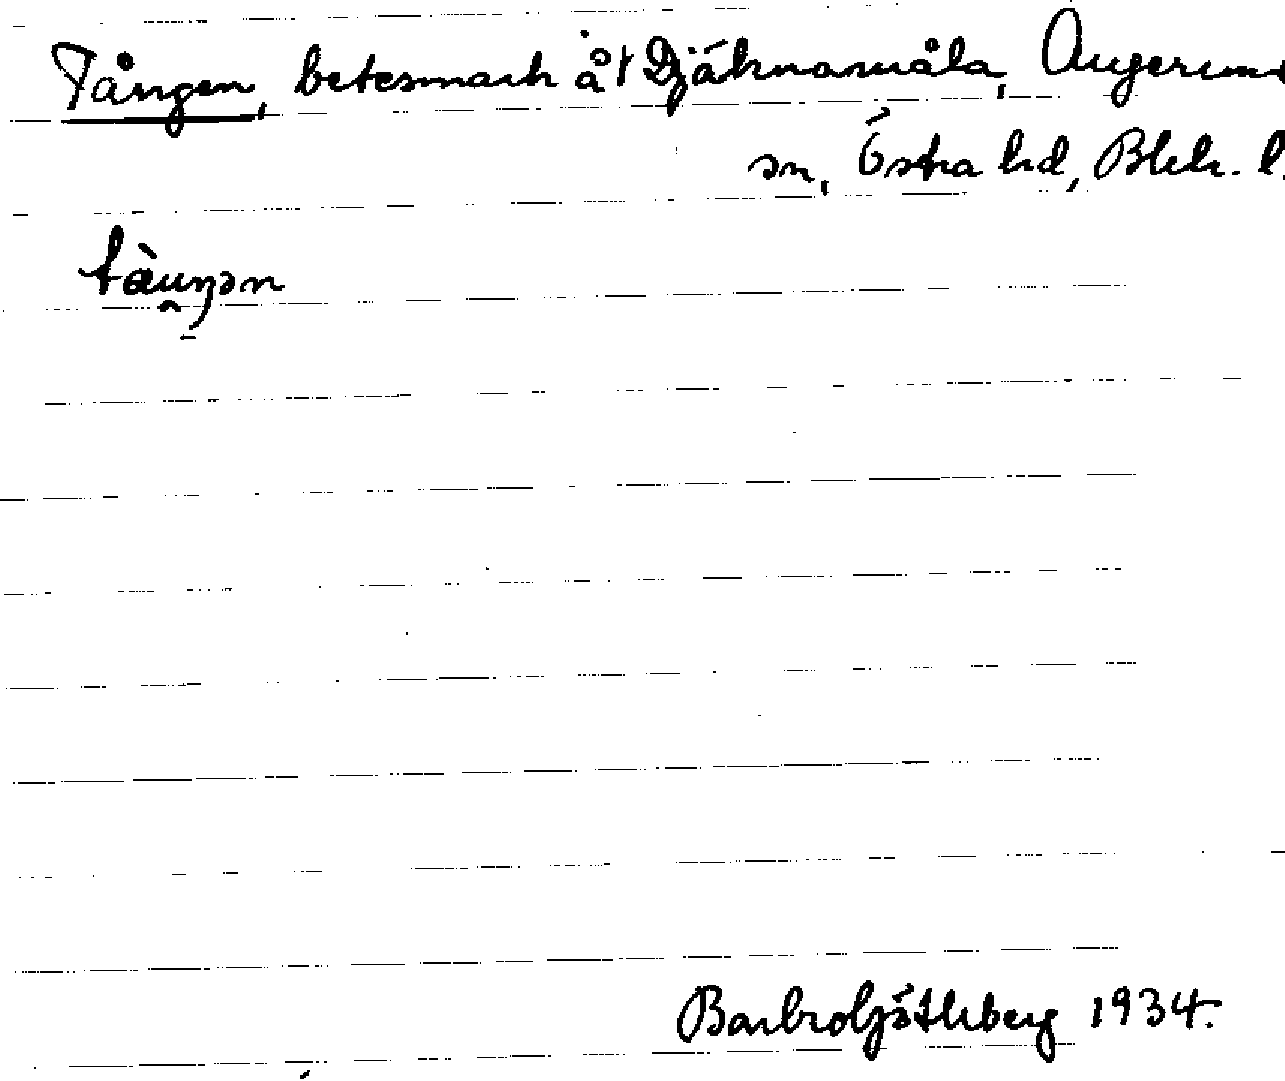 Tången, betesmark åt Djäknamåla, Augerums
sn, Östra hd, Blek. l.
tàu̯ŋən
Barbro Götlberg 1934.